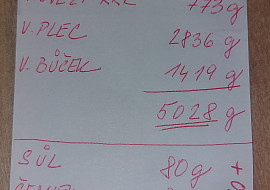 773 g
V. PLEC 2836 g
V. BŮČEK 1419 g
5028 g
SŮL 80 g +